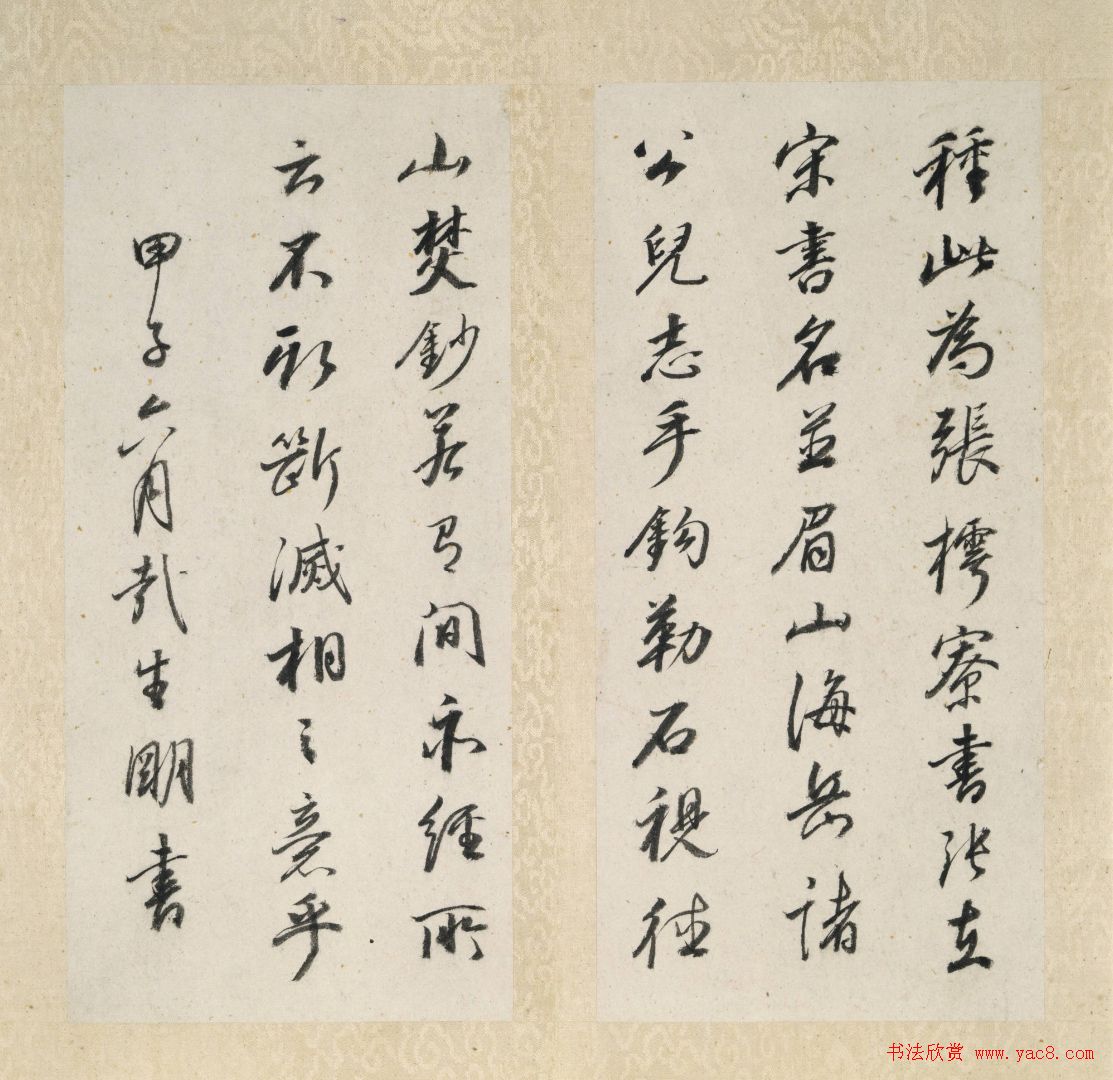 種此為張樗寮書張在
宋書名並眉山海岳諸
公兒志手鉤勒石視徑
山焚鈔若有間亦經所
云不取斷滅相之意乎
甲子六月哉生明書
书法欣赏 www.yac8.com